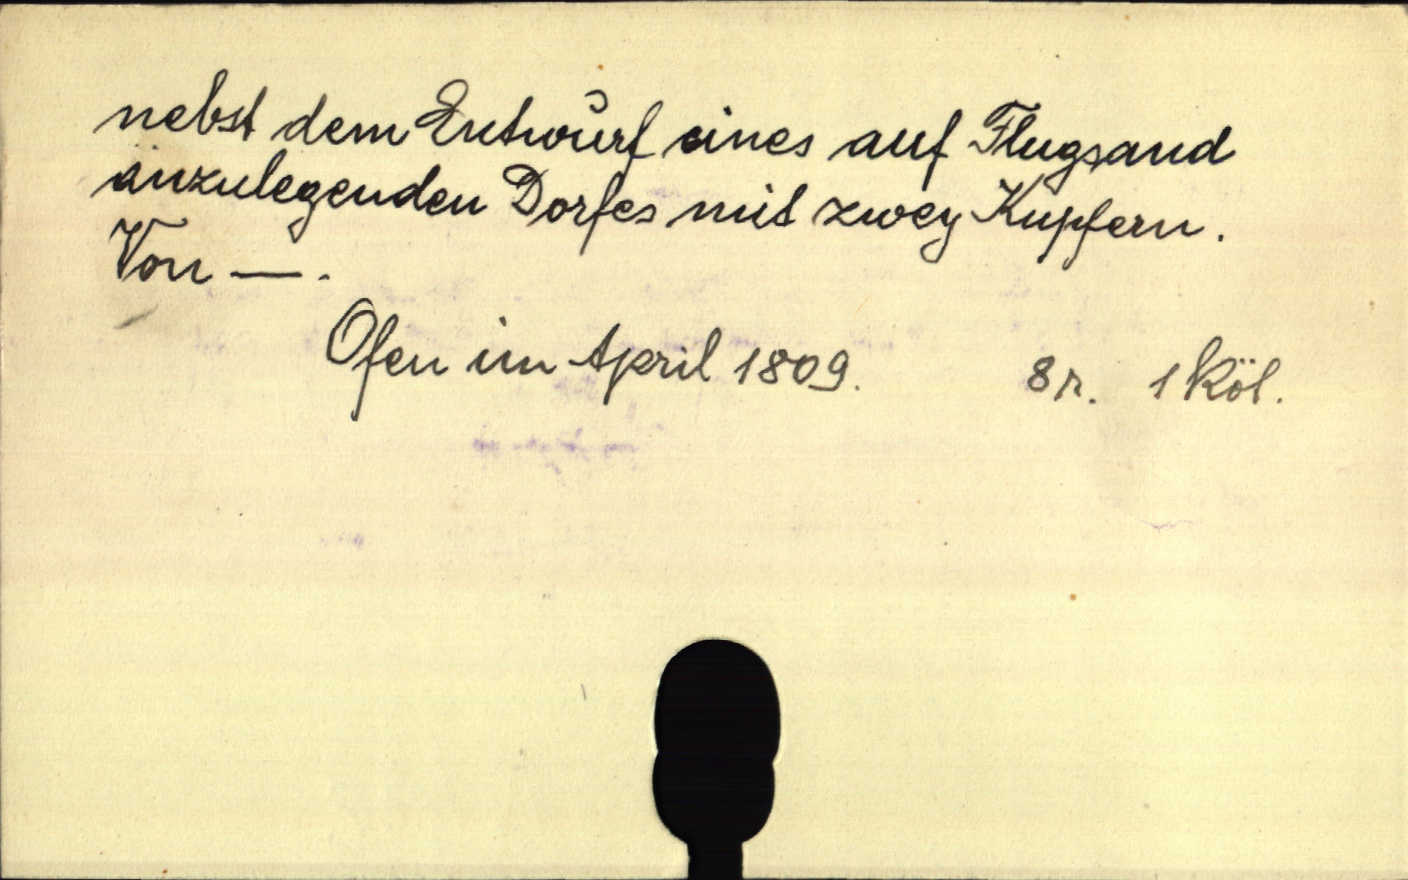 nebst dem Entwurf eines auf Flugsand
anzulegenden Dorfes mit zwey Kupfern.
Von —.
Ofen im April 1809. 8r. 1 köl.